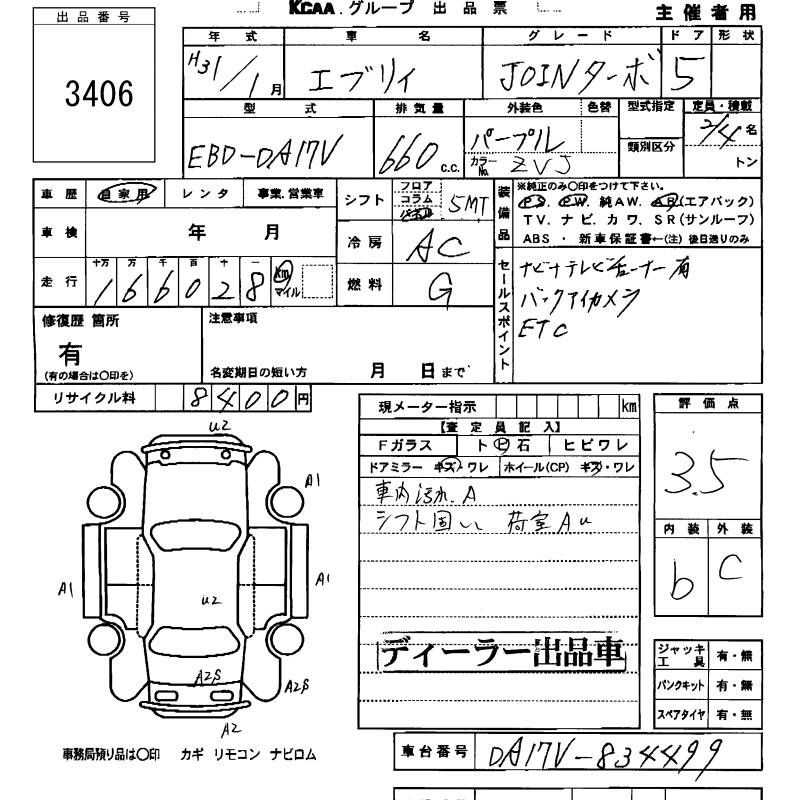 KCAA.グループ 出品票
主催者用
出品番号
3406
年式 車名 グレード ドア 形状
H31/1月 エブリイ JOINターボ 5
型式 排気量 外装色 色替 型式指定 定員・積載
EBD-DA17V 660 c.c. パープル 類別区分 2/4名
カラーNo. ZVJ トン
車歴 自家用 レンタ 事業.営業車
シフト フロア コラム インパネ 5MT
装備品
※純正のみ○印をつけて下さい。
P.S. P.W. 純A.W. A.B(エアバック)
T V. ナ ビ. カ ワ. S R(サンルーフ)
ABS ・ 新車保証書←(注) 後日送りのみ
車検 年 月
冷房 AC
走行 十万 万 千 百 十 一
166028 km マイル
燃料 G
セールスポイント
ナビナテレビチューナー有
バックアイカメラ
ETC
修復歴 箇所
有
(有の場合は○印を)
注意事項
名変期日の短い方 月 日まで
リサイクル料 8400円
現メーター指示 km
評価点
3.5
【査定員記入】
Fガラス ト ヒ 石 ヒビワレ
ドアミラー キズ・ワレ ホイール(CP) キズ・ワレ
車内汚れ.A
シフト固い 荷室Au
内装 外装
b C
U2
A1
A1
A1
U2
A2S
A2S
A2
ディーラー出品車
ジャッキ 工具 有・無
パンクキット 有・無
スペアタイヤ 有・無
事務局預り品は○印 カギ リモコン ナビロム
車台番号 DA17V-834499